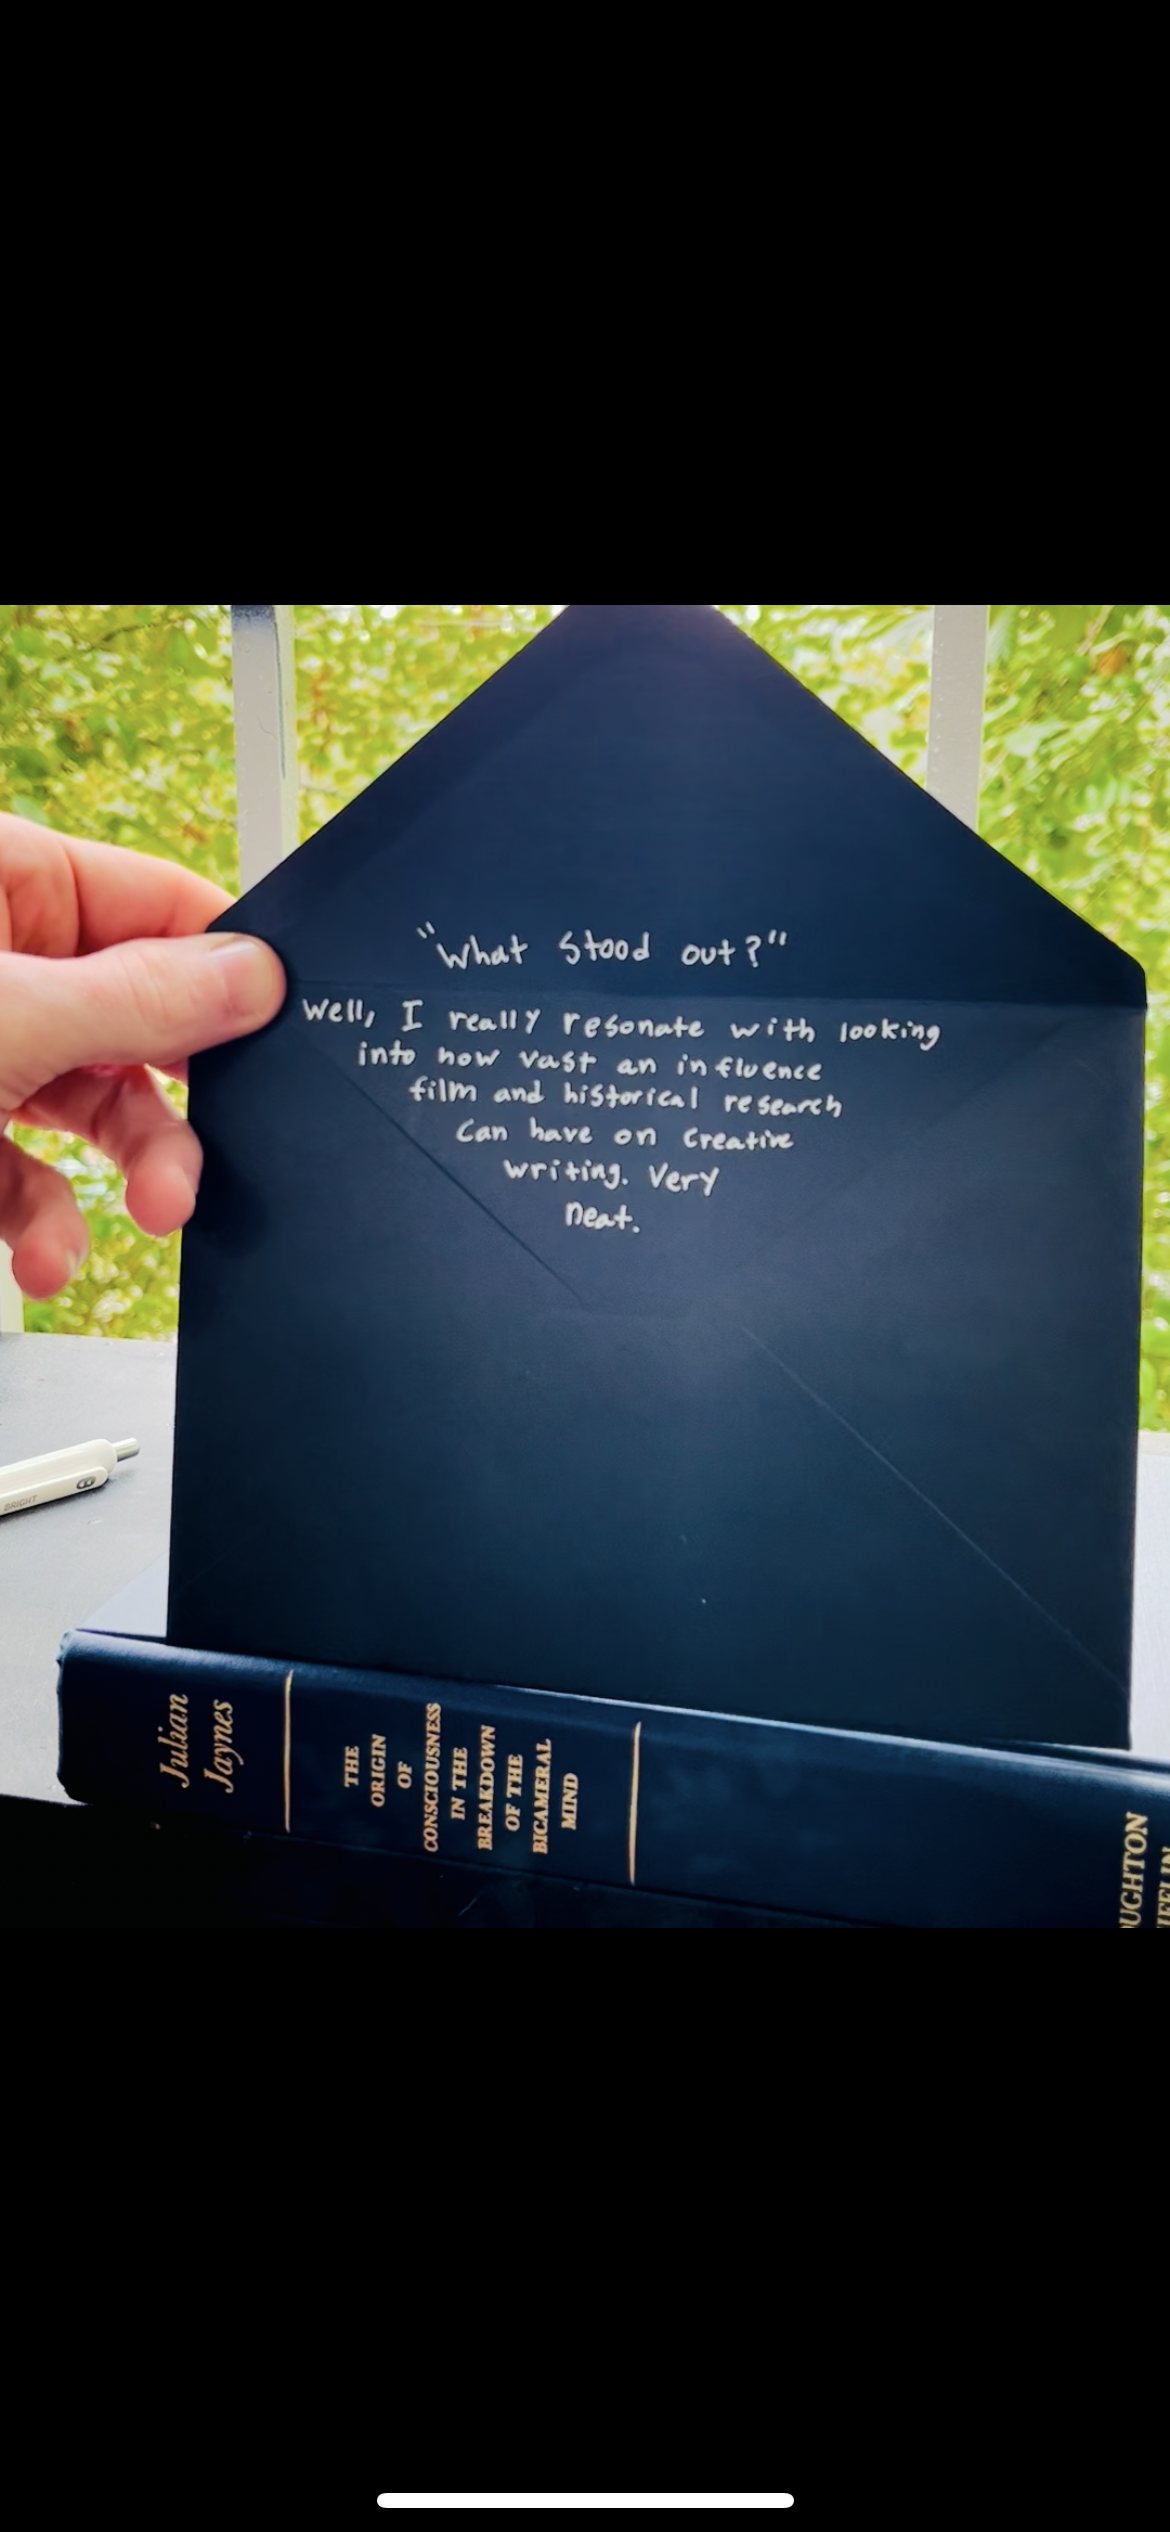 "What stood out?"
Well, I really resonate with looking
into how vast an influence
film and historical research
can have on creative
writing. Very
neat.
BRIGHT
Julian
Jaynes
THE
ORIGIN
OF
CONSCIOUSNESS
IN THE
BREAKDOWN
OF THE
BICAMERAL
MIND
OUGHTON
IFFLIN